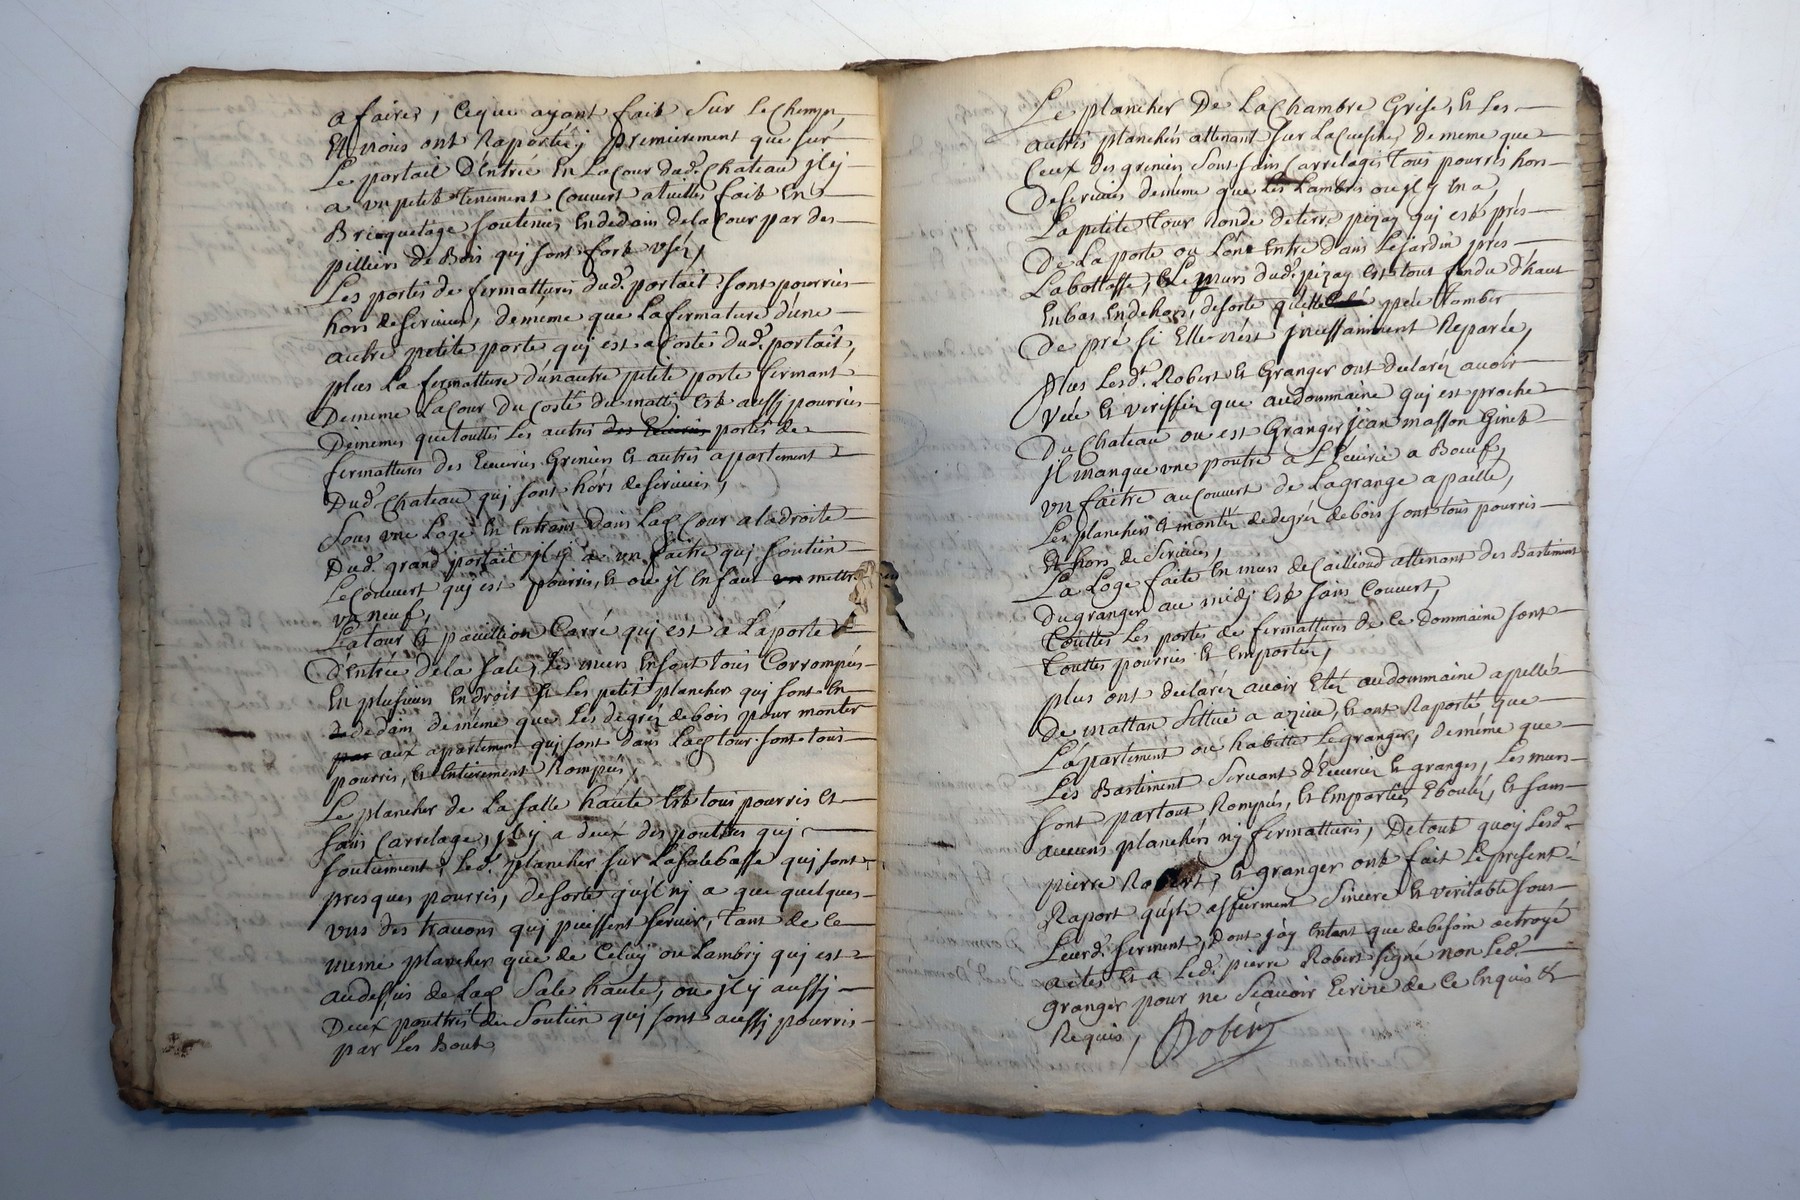 a faires, Ceque ayant fait sur le Champ,
Et nous ont Raportéz premierement que sur
Le portail D'Entrée En La Cour dud.t Chateau Jl y
a un petit tenement Couvert a tuilles fait En
Briquetage soutenüs En dedain dela Cour par des
pilliers de Bois quj sont fort usez,
Les portes de fermattures dud.t portail sont pourries
hors de services, de méme que La fermature d'une
autre petite porte quj est a Costé dud.t portail,
plus La fermatture dun autre petite porte fermant
Dememe La Cour du Costé du mattin Est aussj pourries
Dememes que touttes Les autres des Ecuries portes de
fermattures des Ecuries Greniers Et autres apartement
Dud.t Chateau quj sont hors de services,
Sous une Loge En Entrant dans Lad Cour a la droite
Dud.t grand portail Jl y a un faitre quj soutien
Le Couvert quj est pourris, Et ou Jl En faut un mettre
un neuf,
La tour Et pavillion Carré quj est à La porte
d'Entrée dela sale, Les murs En sont tous Corrompus
En plusieurs Endroit Et Les petit planchers quj sont En
dedain de méme que Les degrez de bois pour monter
par aux apartement quj sont dans Lad tour sont tous
pourris, Et Entierement Rompus,
Le plancher de La salle haute Est tous pourris Et
sans Carrelage, Jl y a deux des pouttres quj
soutiennent Led.t plancher sur La sale basse quj sont
presques pourris, de sorte qu'jl nj a que quelques
uns des travons quj puissent servir, tant de Ce
meme plancher que de Celuy ou Lambrj quj est
au dessus de Lad Sale haute, ou Jl y aussj
Deux pouttres de Soutien quj sont aussj pourris
par Les Bout,
Le plancher De La Chambre Grise, Et Les
autres planchers attenant sur La Cuisine, De meme que
Ceux des greniers sont sans Carrelages Tous pourris hors
de services dememe que Les Lambris ou Jl y En a,
La petite Tour Ronde de terre pizay quj est prés
De La porte ou L'one Entre dans Le Jardin prés
La bottasse, Et Le murs dud.t pizay est tout fendu d'haut
En bas En dehors, de sorte qu'Elle peu tomber
De pré si Elle nést Jncessamment Reparée,
Plus Lesd.ts Robert Et Granger ont declarez avoir
Veüe Et veriffiéz que au dommaine quj est proche
Du Chateau ou est Granger Jean masson Ginet
Jl manque une poutre a L'Ecurie a Boeufs,
un faitre au Couvert de La grange a paille,
Les planchers Et montéz de degréz de bois sont tous pourris
Et hors de Services,
La Loge faite En murs de Cailloud attenant des Bastiment
Du granger au midj Est sans Couvert,
Touttes Les portes de fermattures de Ce dommaine sont
Touttes pourries Et Emportéz,
plus ont declaréz avoir Etéz au dommaine apellé
De mattan sittué a azieu, Et ont Raporté que
L'apartement ou habitte Le granger, de méme que
Les Bastiment Servant d'Ecuries Et granges, Les murs
sont partout Rompus, Et Emportéz Eboulez, Et sans
aucuns planchérs nj fermattures, De tout quoy Lesd.ts
pierre Robert, Et granger ont fait Le present
Raport qu'jls afferment Sincere Et veritable sous
Leurd.t serment, dont J'ay Entant que de besoin octroyé
actes Et a Led.t pierre Robert signé non Led.t
granger pour ne sçavoir Ecrire de Ce Enquis Et
Requis, Robert